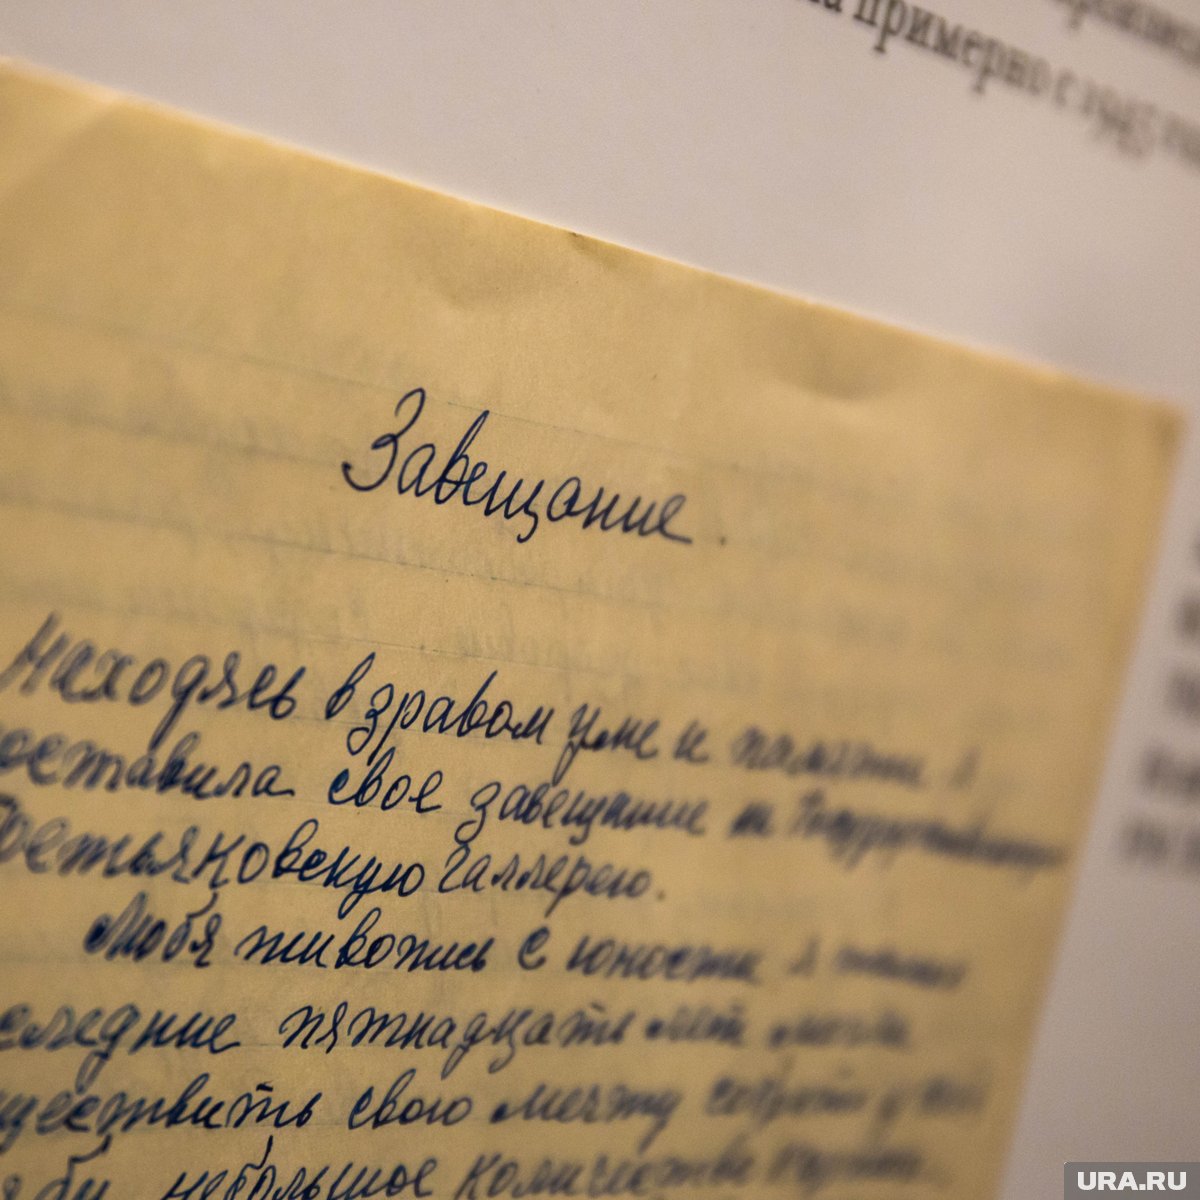 примерно с 1945
Завещание
Находясь в здравом уме и памяти я
оставила свое завещание на Государственную
Третьяковскую галлерею.
Любя живопись с юности я
следние пятнадцать лет
ществить свою мечту собрать у
бы небольшое количество
URA.RU